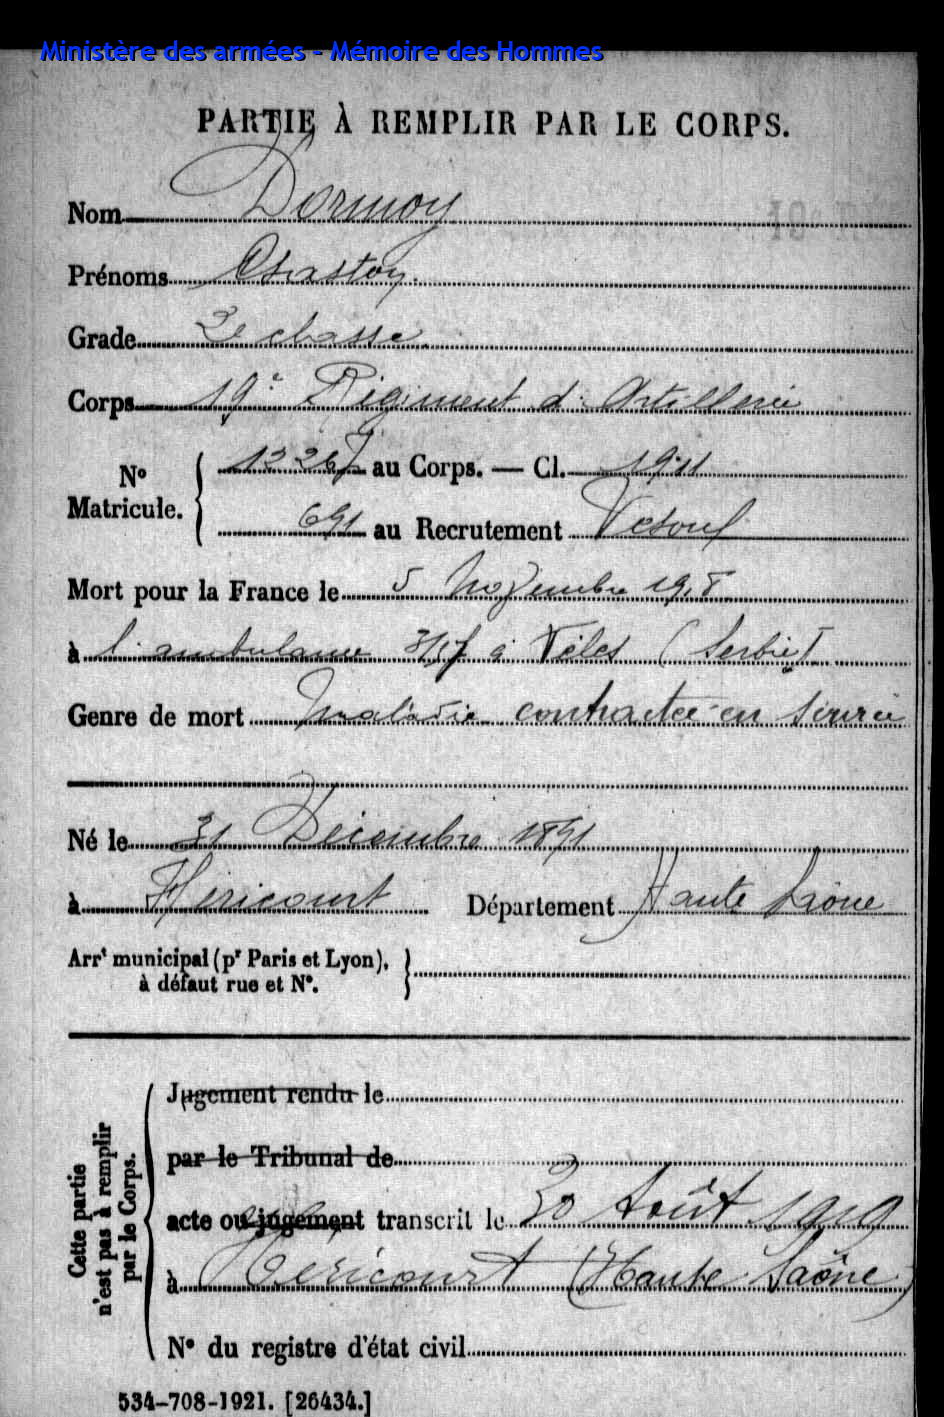 Ministère des armées - Mémoire des Hommes
PARTIE À REMPLIR PAR LE CORPS.
Nom Dormoy
Prénoms
Grade 2e classe
Corps 19e Régiment d'Artillerie
No Matricule. { 12267 au Corps. — Cl. 1911
691 au Recrutement Vesoul
Mort pour la France le 5 Novembre 1918
à l'ambulance à Vélès (Serbie)
Genre de mort Maladie contractée en service
Né le 31 Décembre 1891
à Héricourt Département Haute Saône
Arrt municipal (pr Paris et Lyon), à défaut rue et No. }
Cette partie n'est pas à remplir par le Corps.
Jugement rendu le
par le Tribunal de
acte ou jugement transcrit le 30 Août 1919
à Héricourt (Haute Saône)
No du registre d'état civil
534-708-1921. [26434.]